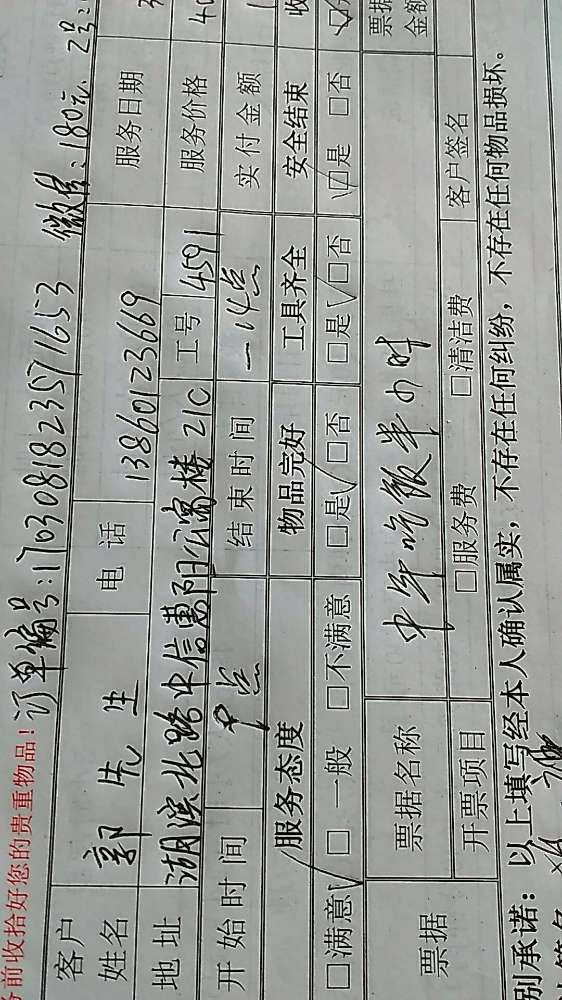 务前收拾好您的贵重物品！订单编号：1703081823571653 微信：180元 2号：
客户姓名 郭先生 电话 13860123669 服务日期
地址 湖滨北路中信惠阳公寓楼21C 工号 4591 服务价格
开始时间 9点 结束时间 14点 实付金额
服务态度 物品完好 工具齐全 安全结束
□满意√ □一般 □不满意 □是√ □否 □是√ □否 □√是 □否
票据 票据名称 中午吃饭半小时 票据金额
开票项目 □服务费 □清洁费 客户签名
别承诺：以上填写经本人确认属实，不存在任何纠纷，不存在任何物品损坏。